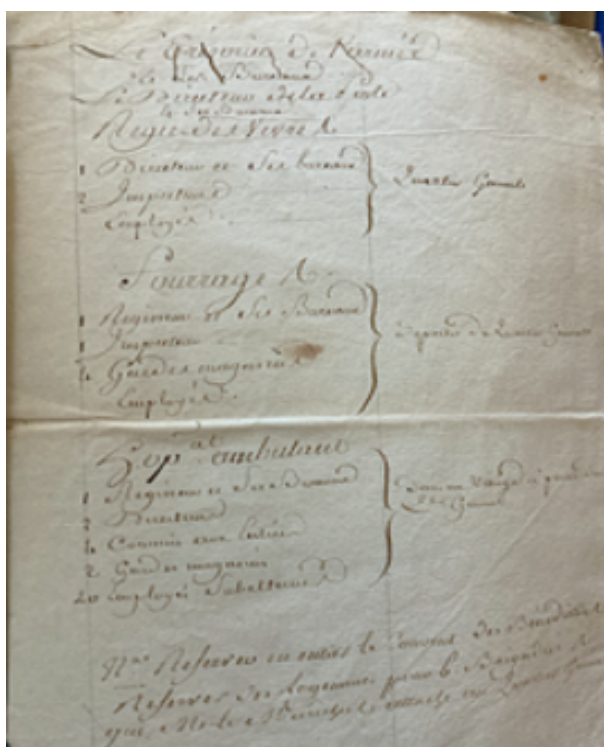 Le Trésorier de l'armée
& Ses Bureaux
Le Directeur de la Poste
& Ses Bureaux
Régie des Vivres
1 Directeur et Ses bureaux
2 Inspecteurs
Employés
Quartier General
Fourrages
1 Regisseur et Ses Bureaux
1 Inspecteur
4 Gardes magasins
Employés
a portée du Quartier General
Hop.al ambulant
1 Regisseur et Ses Bureaux
2 Directeurs
4 Commis aux
2 Gardes magasins
20 Employés Subalternes
Dans un Village a portée du
Gnral
Reserver en entier le Couvent des Bénédictins
Reserver des logemens pour la
que, attachés au Quartier General